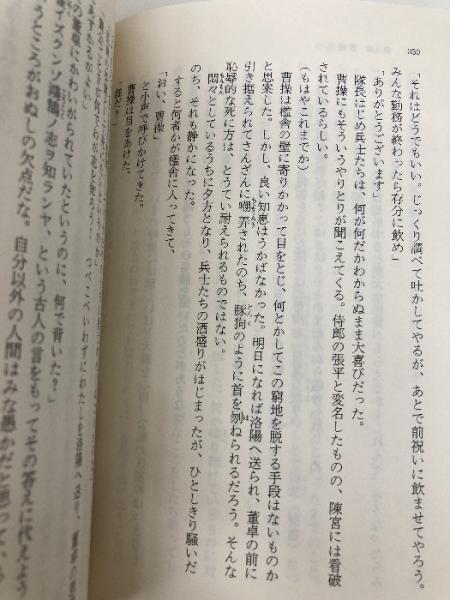 330
「それはどうでもいい。じっくり調べて吐かしてやるが、あとで前祝いに飲ませてやろう。
みんな勤務が終わったら存分に飲め」
「ありがとうございます」
隊長はじめ兵士たちは、何が何だかわからぬまま大喜びだった。
曹操にもそういうやりとりが聞こえてくる。侍郎の張平と変名したものの、陳宮には看破
されているらしい。
(もはやこれまでか)
曹操は檻舎の壁に寄りかかって目をとじ、何とかしてこの窮地を脱する手段はないものか
と思案した。しかし、良い知恵はうかばなかった。明日になれば洛陽へ送られ、董卓の前に
引き据えられてさんざんに嘲弄されたのち、豚狗のように首を刎ねられるだろう。そんな
恥辱的な死に方は、とうてい耐えられるものではない。
悶々としているうちに夕方となり、兵士たちの酒盛りがはじまったが、ひとしきり騒いだ
のち、それも静かになった。
すると何者かが檻舎に入ってきて、
「おい、曹操」
と小声で呼びかけてきた。
曹操は目をあけた。
「誰だ?」
つべこべいわずにわたしを洛陽へ送り、
董卓にかわいがられていたというのに、何で背いた?」
イズクンゾ鴻鵠ノ志ヲ知ランヤ、という古人の言をもってその答えに代えよう
うところがおぬしの欠点だな。自分以外の人間はみな愚かだと思って